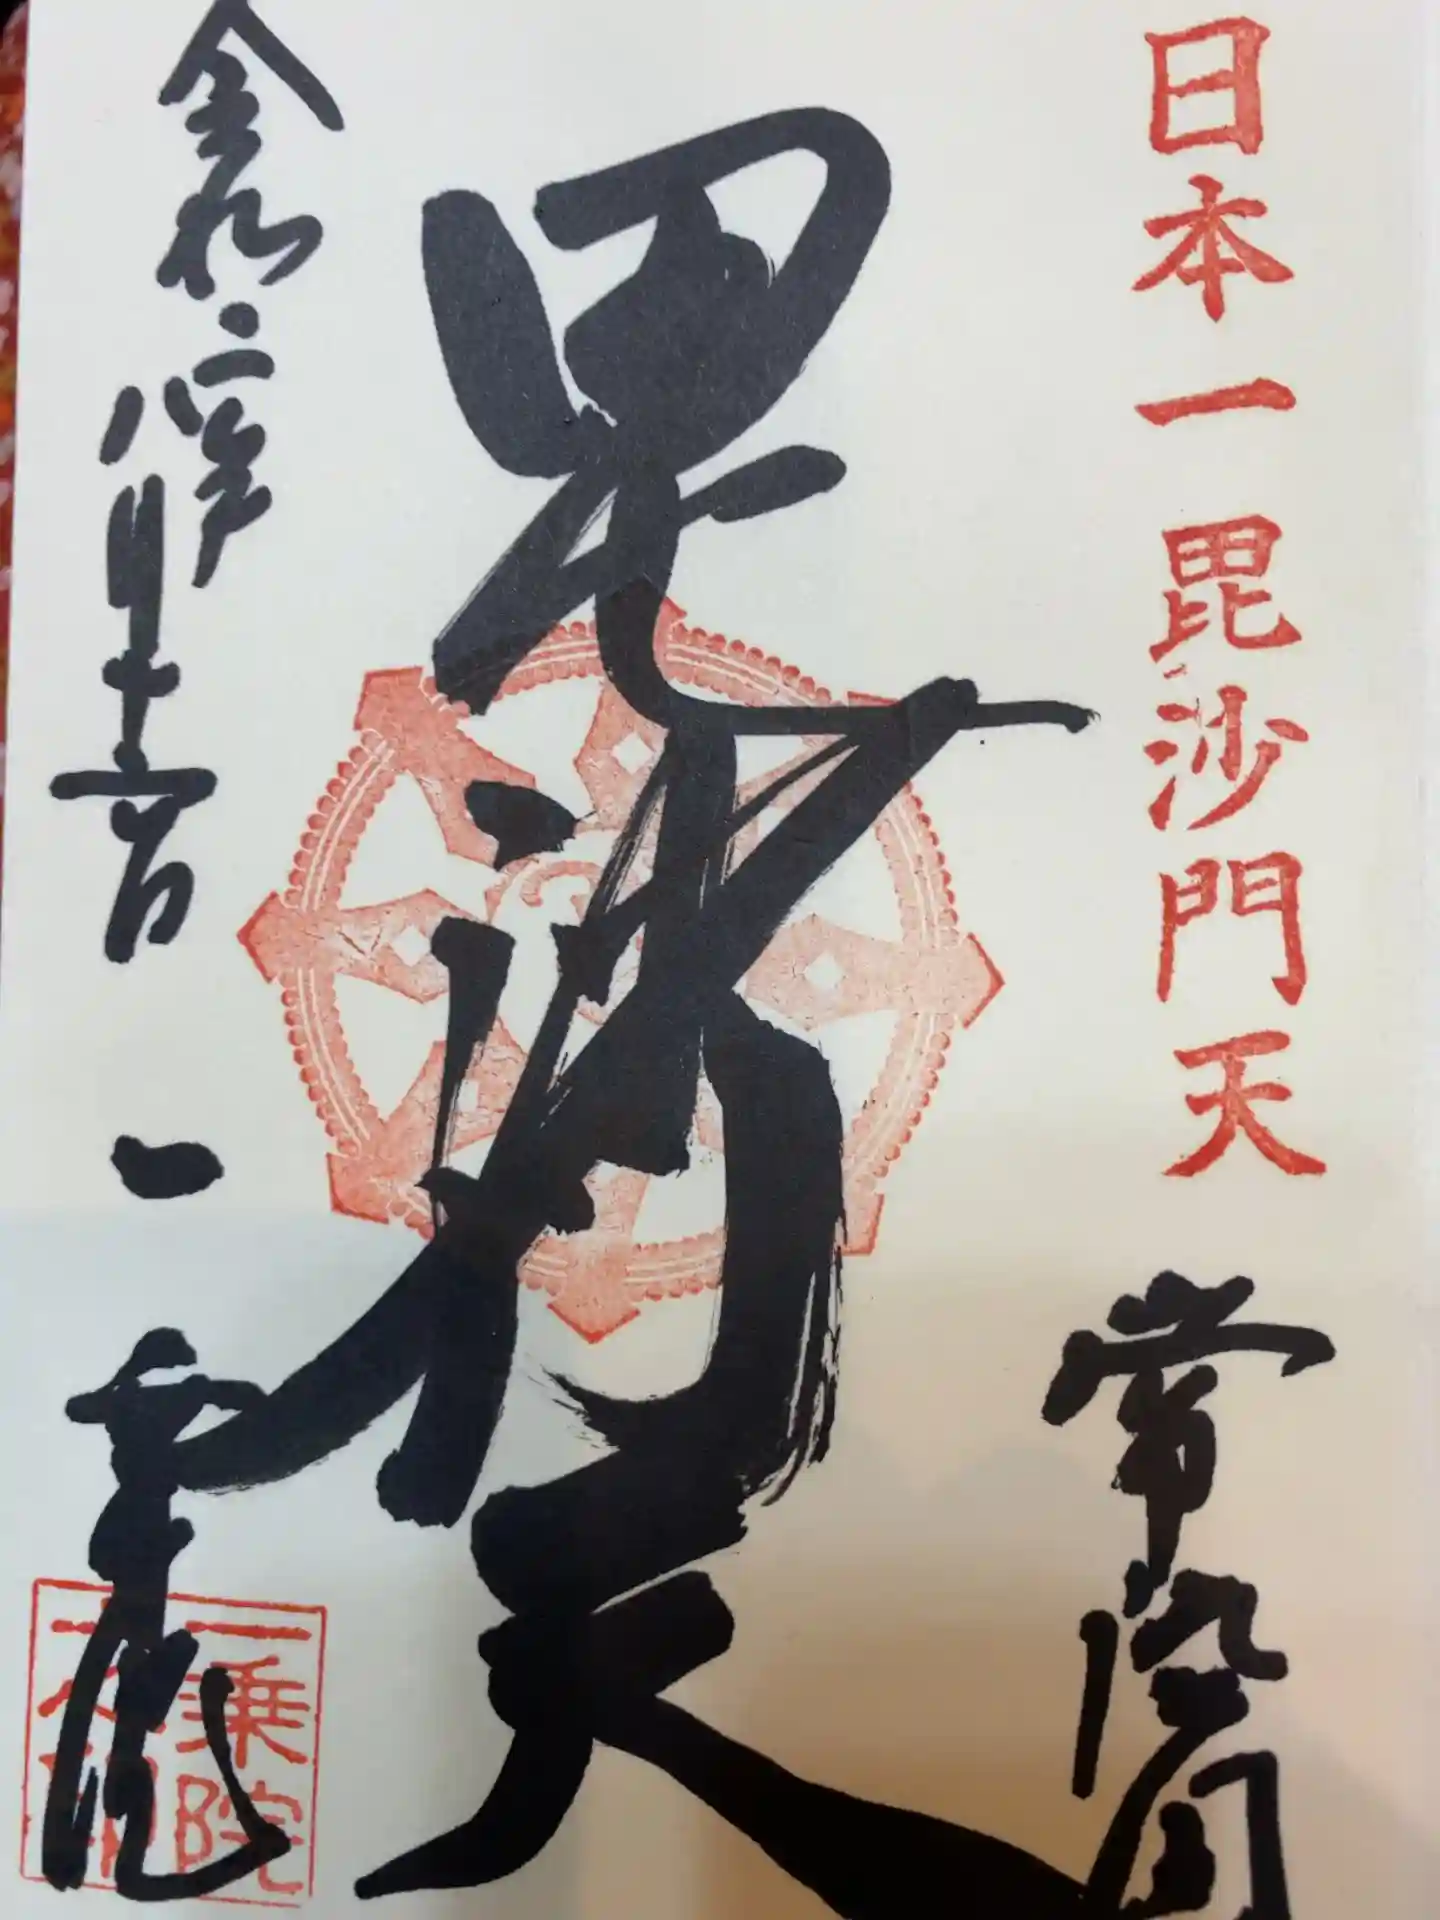 日本一毘沙門天
常陸國
毘沙門天
令和二年
八月十六日
一乗院
一乗院